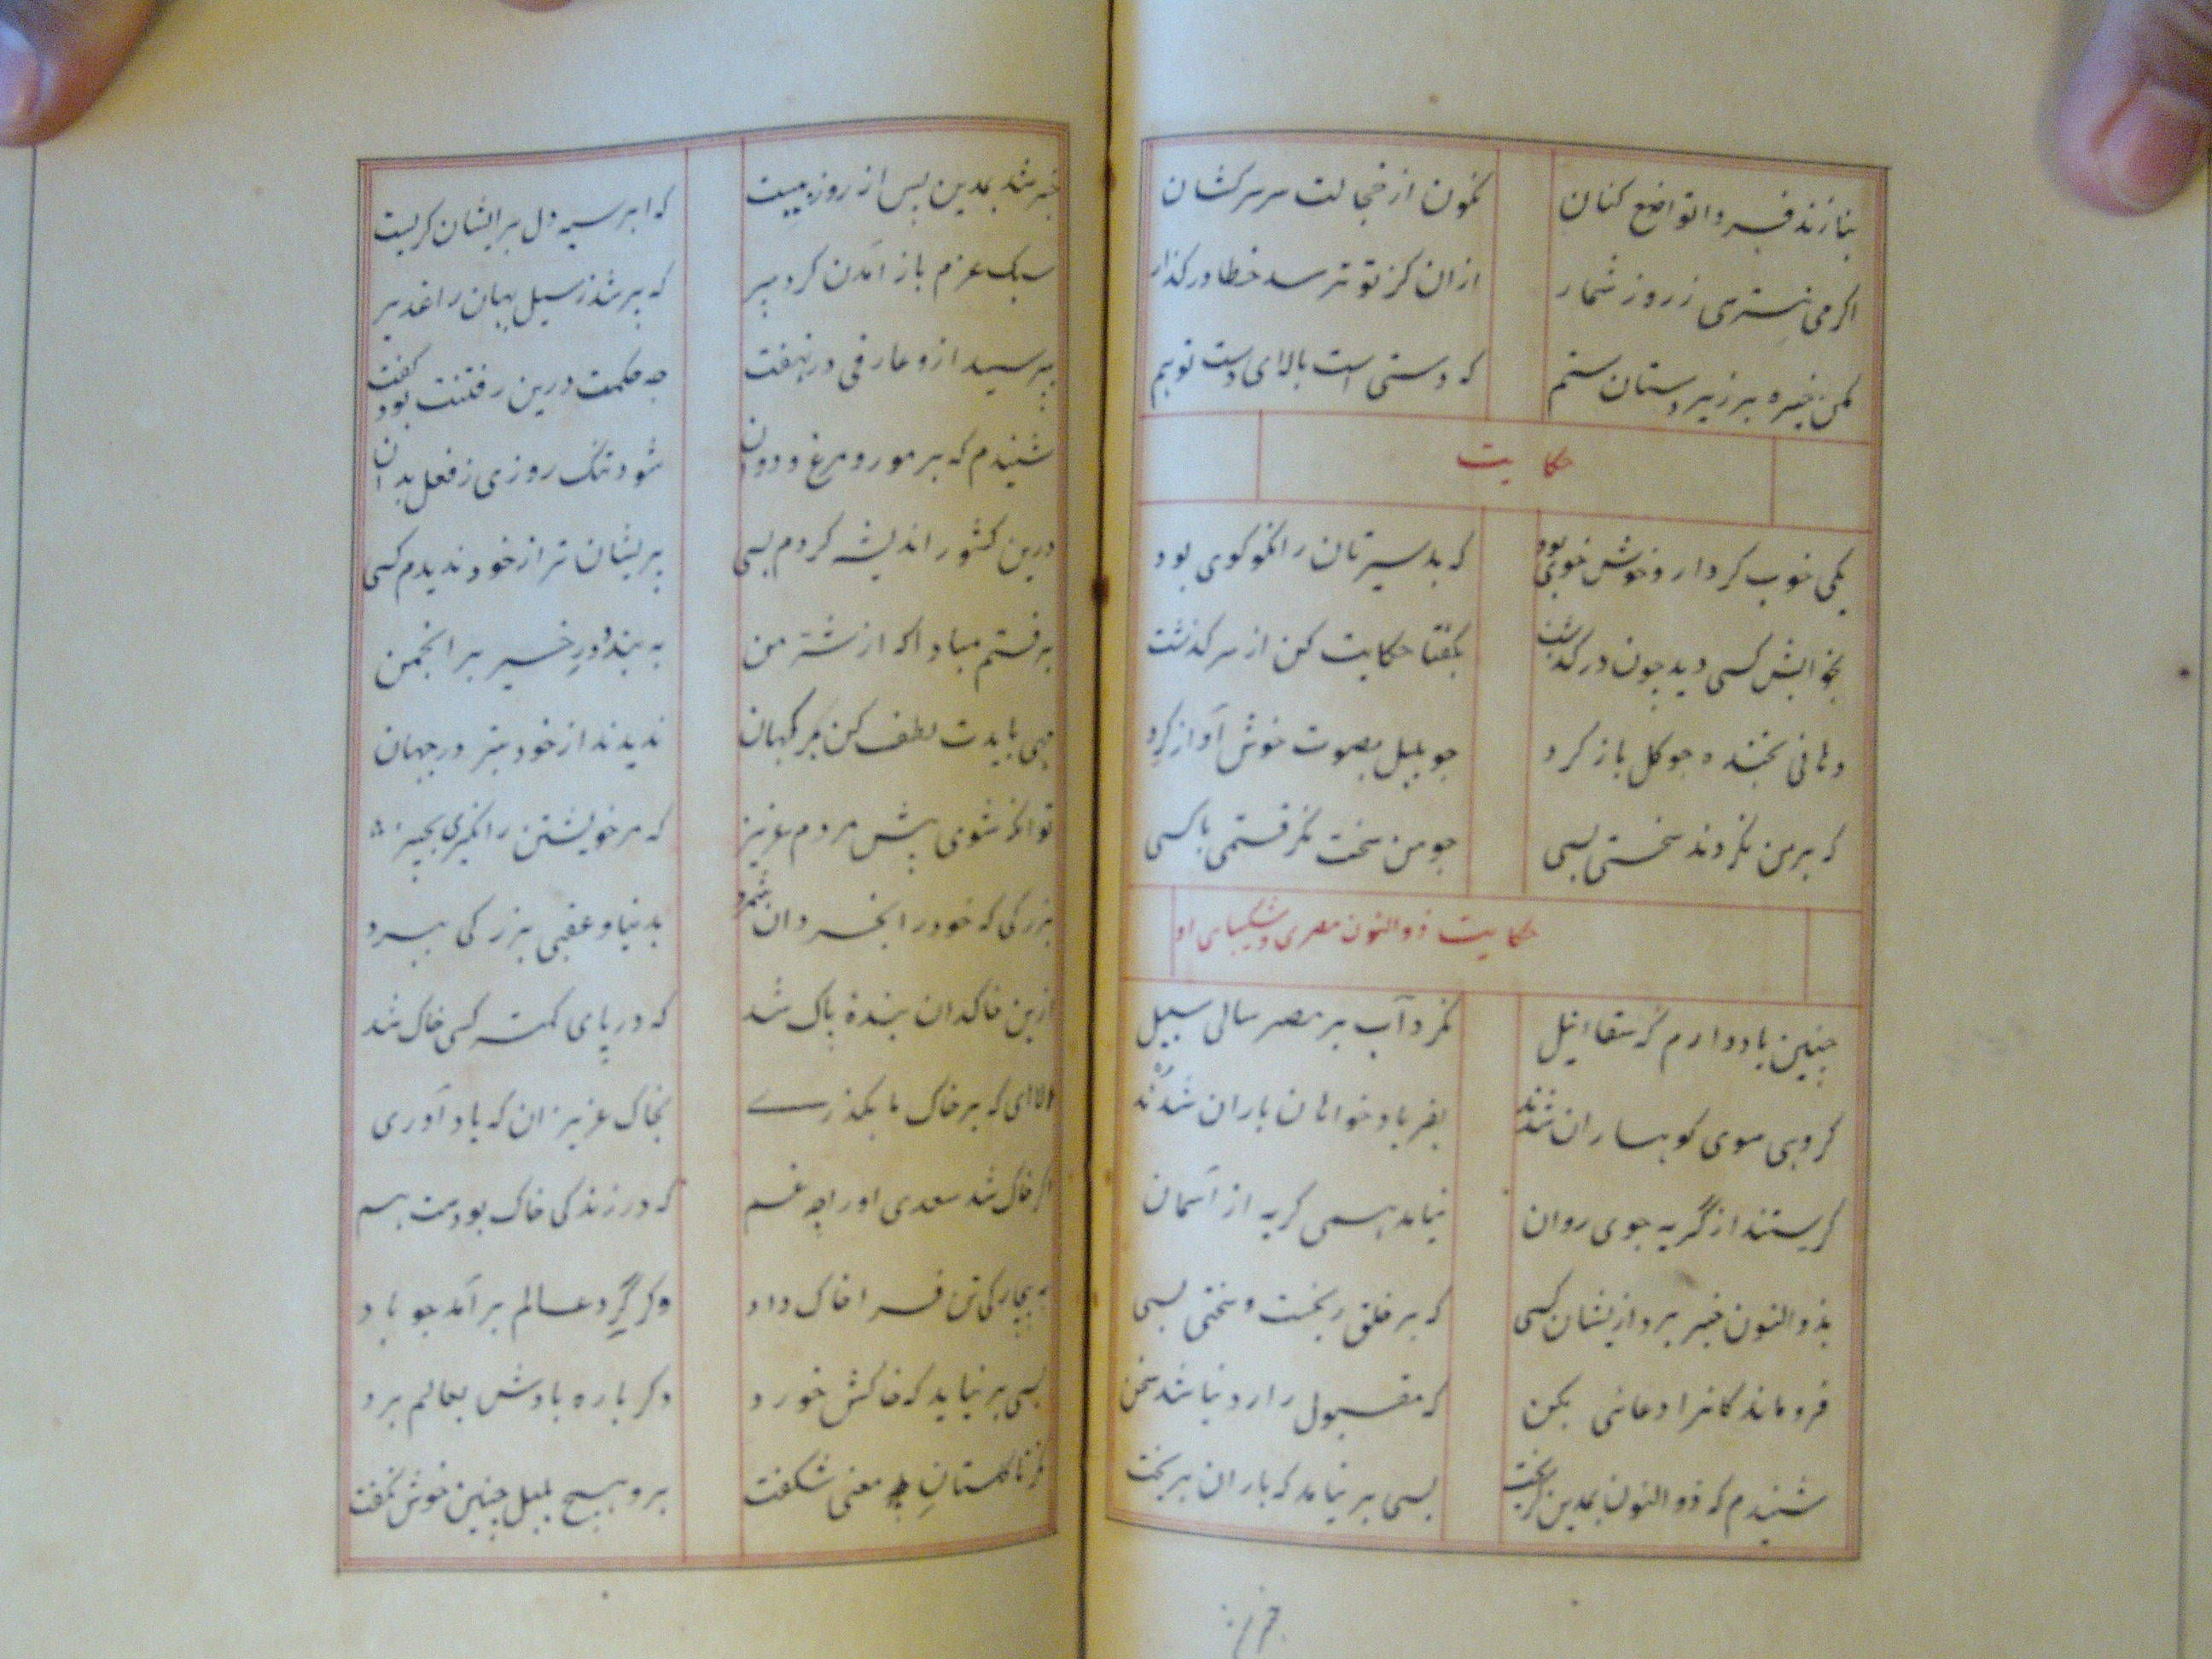 بنازند فردا تواضع کنان نکون از خجالت سر سرکشان
اکر می بترسی ز روز شمار ازان کز تو ترسد خطا در کذار
مکن خیره بر زیر دستان ستم که دستی است بالای دست تو هم
حکایت
یکی خوب کردار و خوش خوی بود که بد سیرتان را نکو کوی بود
بخوابش کسی دید چون در کذشت بکفتا حکایت کن از سر کذشت
دهانی بخنده چو کل باز کرد چو بلبل بصوت خوش آواز کرد
که بر من نکردند سختی بسی چو من سخت نکرفتمی با کسی
حکایت ذوالنون مصری و شکیبایی او
چنین یاد دارم که سقاء نیل نکرد آب بر مصر سالی سبیل
کروهی سوی کوهساران شدند بفریاد خواهان باران شدند
کریستند از گریه جوی روان نیامد همی گریه از آسمان
بذوالنون خبر برد ازیشان کسی که بر خلق ریخست و سختی بسی
فرو ماندکانرا دعائی بکن که مقبول را رد نباشد سخن
شنیدم که ذوالنون بمدین کریخت بسی بر نیامد که باران بریخت
خبر شد بمدین پس از روز بیست که ابر سیه دل بر ایشان کریست
سبک عزم باز آمدن کرد پیر که پر شد ز سیل بهاران غدیر
بپرسید ازو عارفی در نهفت چه حکمت درین رفتنت بود کفت
شنیدم که بر مور و مرغ و ددان شود تنک روزی ز فعل بدان
درین کشور اندیشه کردم بسی پریشان تر از خود ندیدم کسی
برفتم مبادا که از شر من به بندد در خیر بر انجمن
بهی بایدت لطف کن با کهان ندیدند از خود بتر در جهان
تو انکه شوی پیش مردم عزیز که مر خویشتن را نکیری بچیز
بزرکی که خود را بخردان شمرد بدنیا و عقبی بزرکی ببرد
ازین خاکدان بندهٔ پاک شد که در پای کمتر کسی خاک شد
الا ای که بر خاک ما بکذری بخاک عزیزان که یاد آوری
اکر خاک شد سعدی او را چه غم که در زندکی خاک بودست هم
به بیچارکی تن فرا خاک داد وکر گرد عالم برآمد چو باد
بسی بر نیاید که خاکش خورد دکر باره بادش بعالم برد
نکر تا کلستان معنی شکفت برو هیچ بلبل چنین خوش نکفت